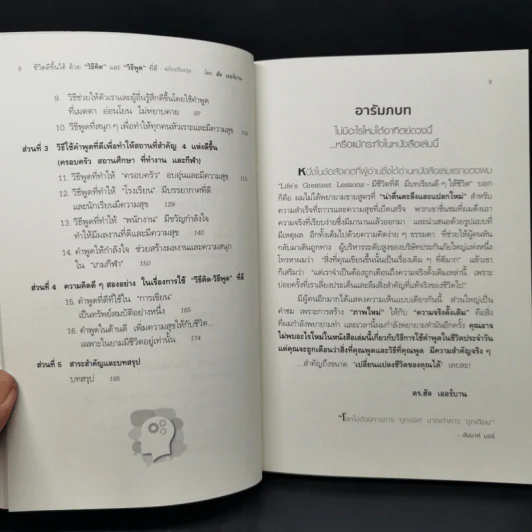 8 ชีวิตดีขึ้นได้ ด้วย "วิธีคิด" และ "วิธีพูด" ที่ดี - ฉบับปรับปรุง โดย ฮัล เออร์บาน
9. วิธีช่วยให้ตัวเราและผู้อื่นรู้สึกดีขึ้นโดยใช้คำพูด
ที่เมตตา อ่อนโยน ไม่หยาบคาย 97
10. วิธีพูดที่สนุก ๆ เพื่อทำให้ทุกคนหัวเราะและมีความสุข 105
ส่วนที่ 3 วิธีใช้คำพูดที่ดีเพื่อทำให้สถานที่สำคัญ 4 แห่งดีขึ้น
(ครอบครัว สถานศึกษา ที่ทำงาน และกีฬา)
11. วิธีพูดที่ทำให้ "ครอบครัว" อบอุ่นและมีความสุข
12. วิธีพูดที่ทำให้ "โรงเรียน" มีบรรยากาศที่ดี
และนักเรียนมีความสุข 129
13. วิธีพูดที่ทำให้ "พนักงาน" มีขวัญกำลังใจ
ทำให้มีผลงานที่ดีและมีความสุข 140
14. คำพูดให้กำลังใจ ช่วยสร้างผลงานและความสนุก
ใน "เกมกีฬา" 150
ส่วนที่ 4 ความคิดดี ๆ สองอย่าง ในเรื่องการใช้ "วิธีคิด-วิธีพูด" ที่ดี
15. คำพูดที่ดีที่ใช้ใน "การเขียน"
เป็นทรัพย์สมบัติอย่างหนึ่ง 165
16. คำพูดในด้านดี เพิ่มความสุขให้กับชีวิต...
เฉพาะในยามมีชีวิตอยู่เท่านั้น 174
ส่วนที่ 5 สาระสำคัญและบทสรุป
บทสรุป 185
9
อารัมภบท
ไม่มีอะไรใหม่ใต้อาทิตย์ดวงนี้
...หรือแม้กระทั่งในหนังสือเล่มนี้
หนึ่งในข้อสังเกตที่ผู้อ่านซึ่งได้อ่านหนังสือเล่มแรกของผม
"Life's Greatest Lessons - มีชีวิตที่ดี มีบทเรียนดี ๆ ให้ชีวิต" บอก
ก็คือ ผมไม่ได้พยายามขายสูตรที่ "น่าตื่นตะลึงและแปลกใหม่" สำหรับ
ความสำเร็จที่ถาวรและความสุขที่เบ็ดเสร็จ พวกเขาชื่นชมที่ผมดึงเอา
ความจริงที่เรียบง่ายซึ่งมีมานานแล้วออกมา และนำเสนอด้วยรูปแบบที่
มีเหตุผล อีกทั้งเต็มไปด้วยความคิดง่าย ๆ ธรรมดา ที่ช่วยให้ผู้คนเดิน
กลับมาเดินถูกทาง ผู้บริหารระดับสูงของบริษัทประกันภัยใหญ่แห่งหนึ่ง
โทรหาผมว่า "สิ่งที่คุณเขียนขึ้นนั้นเป็นเรื่องเดิม ๆ ที่ดีมาก" แล้วเรา
ก็เสริมว่า "แต่เราจำเป็นต้องถูกเตือนถึงความจริงดั้งเดิมเหล่านี้ เพราะ
บ่อยครั้งที่เราลืมประเด็นและลืมสิ่งสำคัญที่แท้จริงของชีวิตไป"
มีผู้คนอีกมากได้แสดงความเห็นแบบเดียวกันนี้ ส่วนใหญ่เป็น
คำชม เพราะการสร้าง "ภาพใหม่" ให้กับ "ความจริงดั้งเดิม" คือสิ่ง
ที่ผมกำลังพยายามทำ และเวลานี้ผมกำลังพยายามทำมันอีกครั้ง คุณอาจ
ไม่พบอะไรใหม่ในหนังสือเล่มนี้เกี่ยวกับวิธีการใช้คำพูดในชีวิตประจำวัน
แต่คุณจะถูกเตือนว่าสิ่งที่คุณพูดและวิธีที่คุณพูด มีความสำคัญจริง ๆ
...สำคัญถึงขนาด "เปลี่ยนแปลงชีวิตของคุณได้" เลยล่ะ!
ดร.ฮัล เออร์บาน
"โลกไม่ต้องการการ 'ถูกบอก' มากเท่าการ 'ถูกเตือน'"
- ฮันนาห์ มอร์